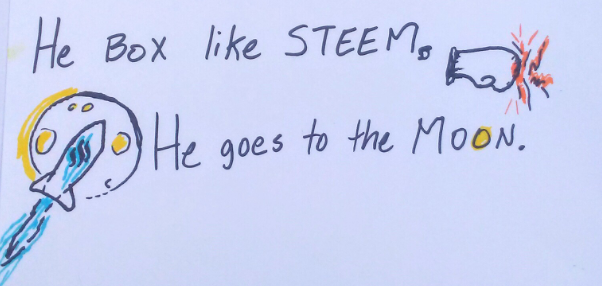 He BOX like STEEM.
He goes to the MOON.